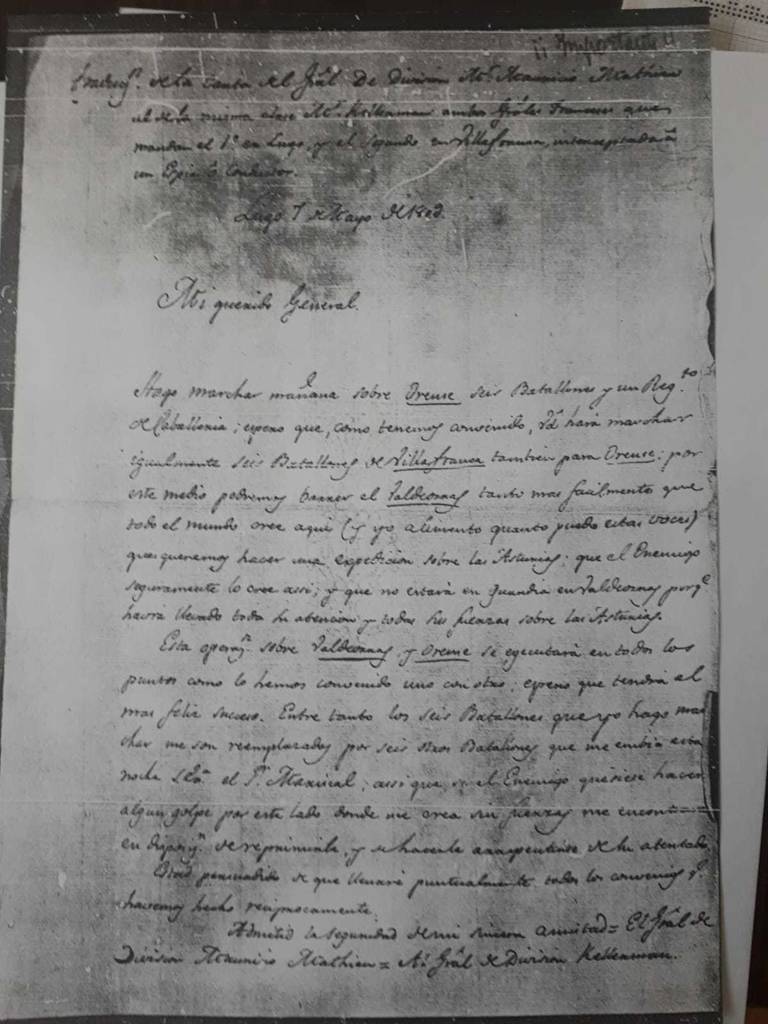 ¡¡ Importante !!
Traducⁿ. de la Carta del Grâl De Division Mr. Maurició Mathieu
al de la misma clase Mr. Kellerman ambos Gráles Franceses que
mandan el 1º en Lugo, y el segundo en Villafranca, interceptada à
un Espia ó Conductor.
Lugo 7 de Mayo de 1809.
Mi querido General.
Hago marchar mañana sobre Orense seis Batallones y un Reg.to
de Caballeria; espero que, como tenemos convenido, Vd hará marchar
igualmente seis Batallones de Villafranca tambien para Orense: por
este medio podremos barrer el Valdeorras tanto mas facilmente que
todo el mundo cree aqui (y yo alimento quanto puedo estas voces)
que queremos hacer una expedicion sobre las Asturias; que el Enemigo
seguramente lo cree assi; y que no estará en Guardia en Valdeorras porq.e
havrá llevado toda su atencion y todas sus fuerzas sobre las Asturias.
Esta operaⁿ. sobre Valdeorras, y Orense se ejecutará en todos los
puntos como lo hemos convenido uno con otro; espero que tendrá el
mas feliz suceso. Entre tanto los seis Batallones que yo hago mar
char me son reemplazados por seis otros Batallones que me embia esta
noche el S.r Mariscal; assi que, si el Enemigo quisiese hacer
algun golpe por este lado donde me crea sin fuerzas me encont
en disposⁿ. de reprimirle, y de hacerle arrepentirse de su atentado.
Estad persuadido de que llenaré puntualmente todos los convenios q.e
havemos hecho reciprocamente.
Admitid la seguridad de mi sincera amistad = El Grâl de
Division Maurició Mathieu = Al Grâl de Division Kellerman.